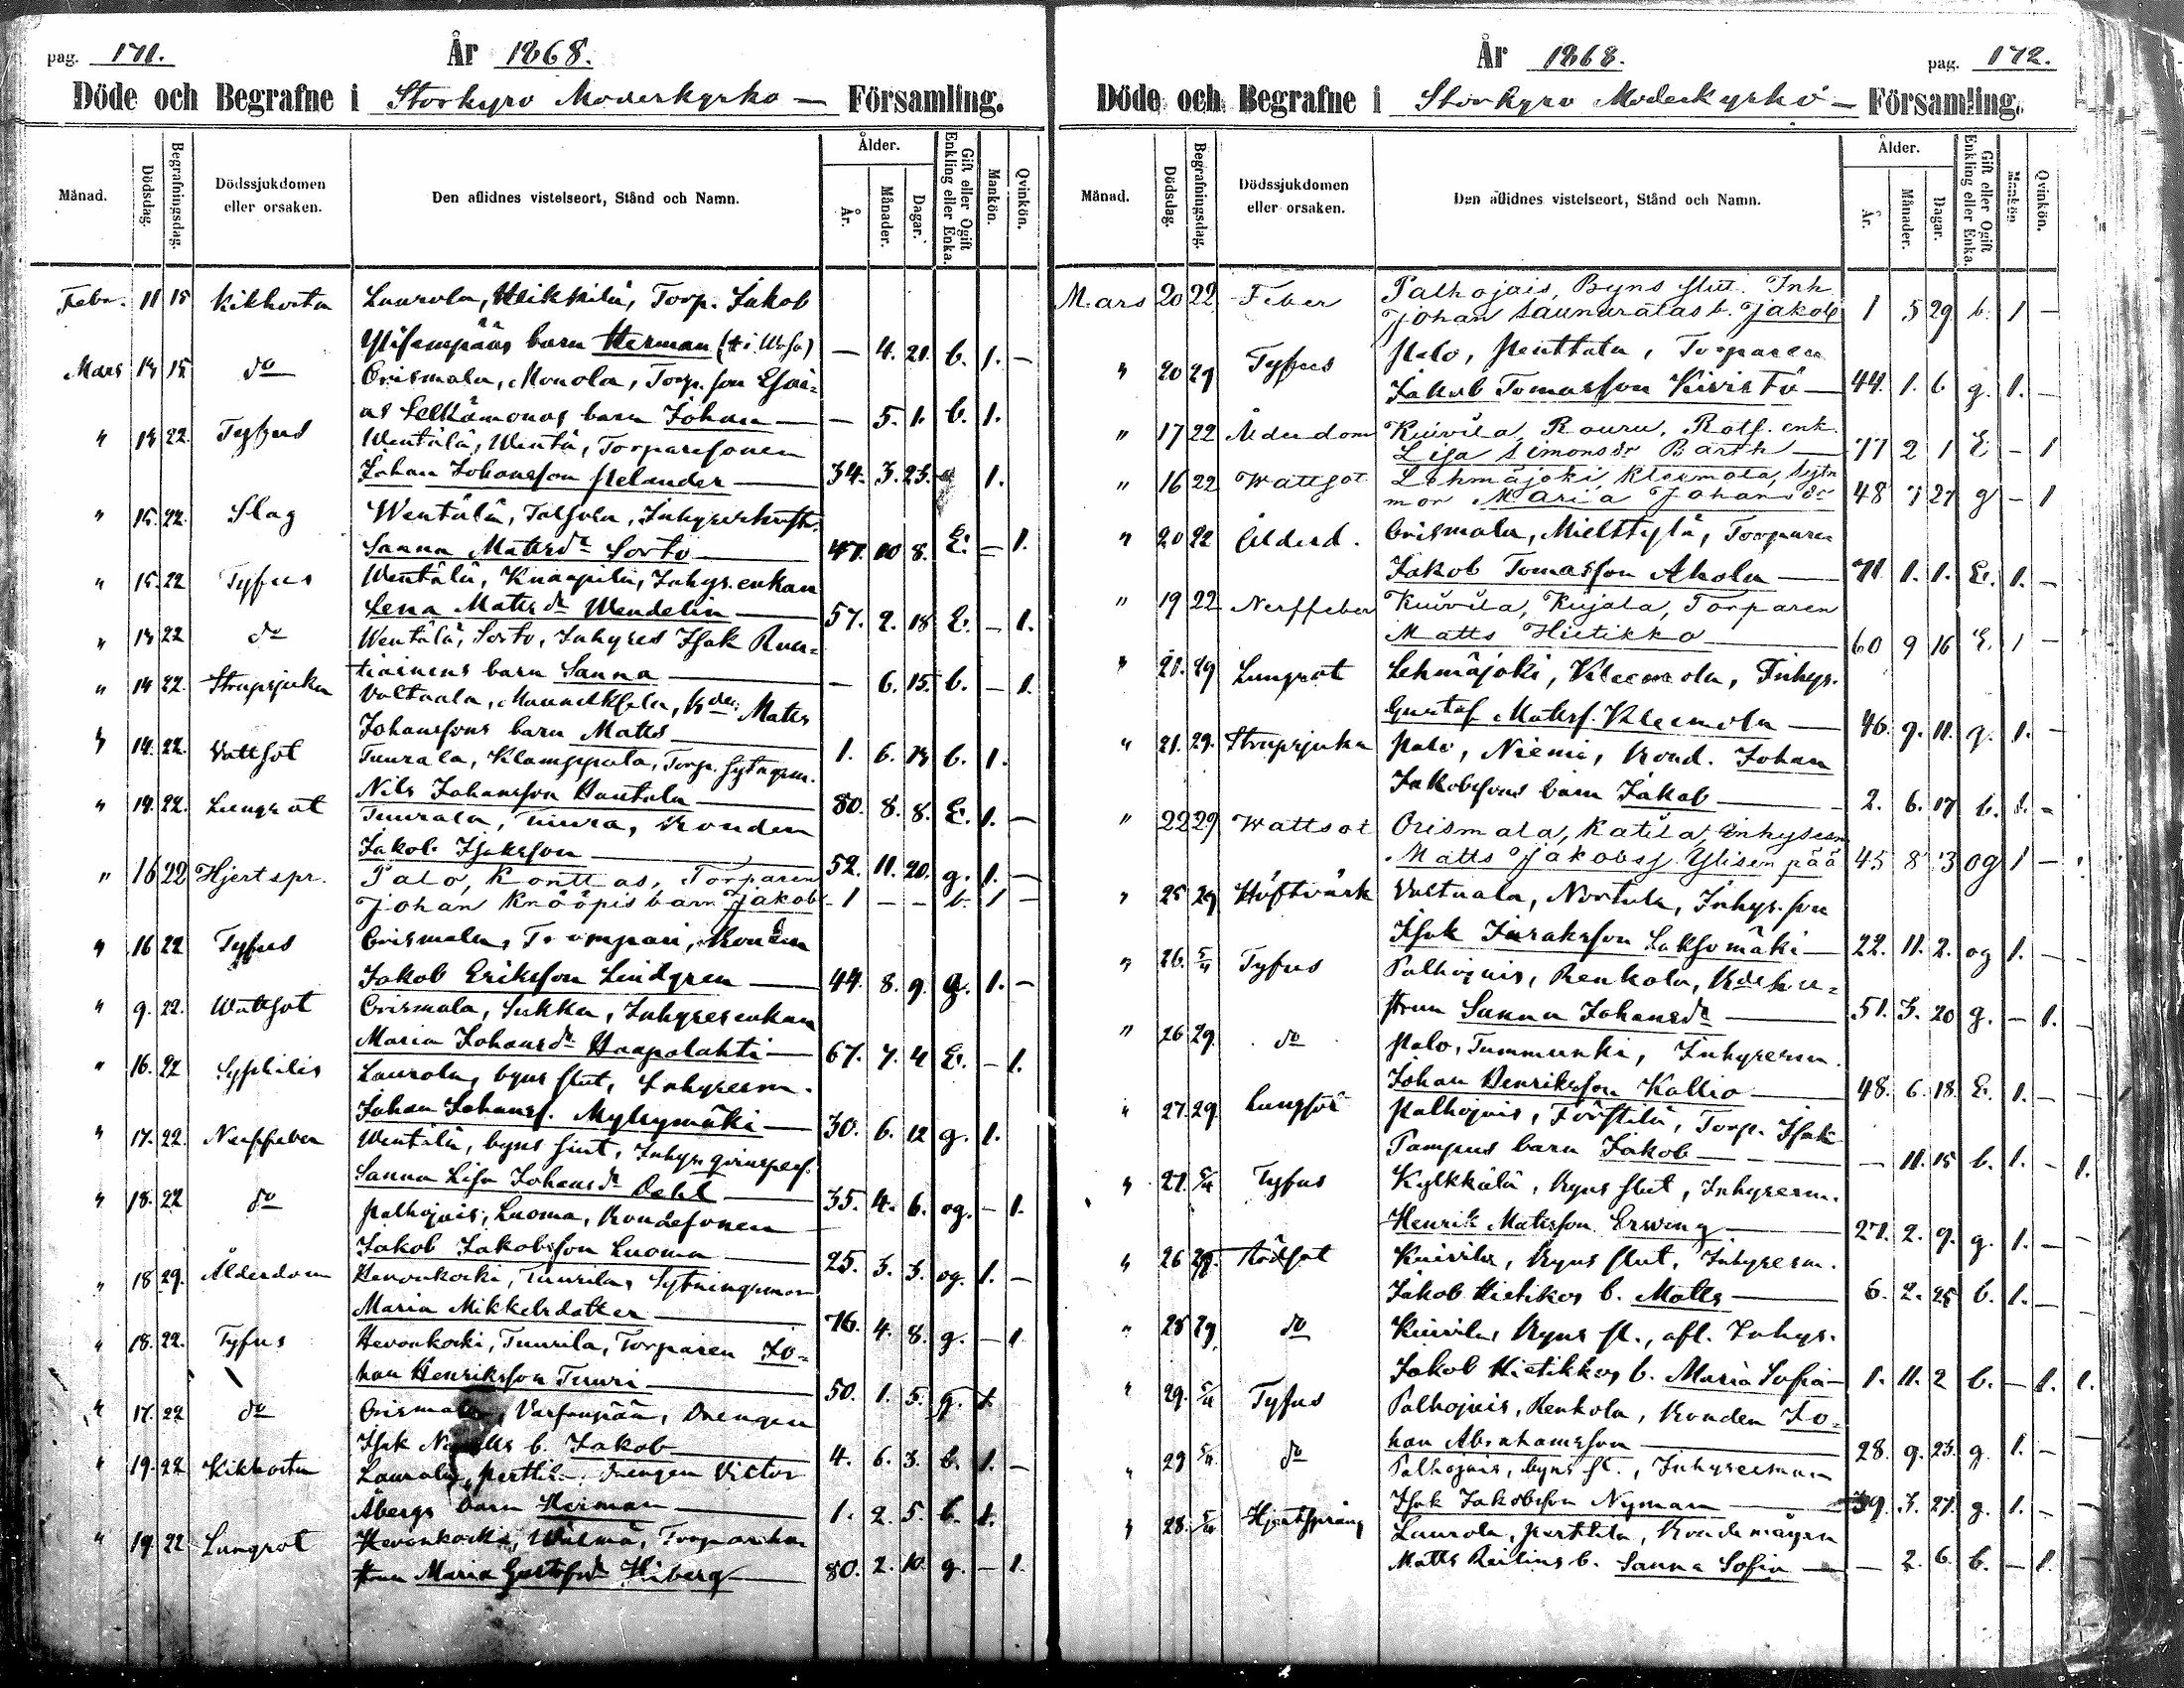 pag. 171.
År 1868.
Döde och Begrafne i Storkyro Moderkyrko — Församling.
Månad. Dödsdag. Begrafningsdag. Dödssjukdomen eller orsaken. Den aflidnes vistelseort, Stånd och Namn. Ålder. År. Månader. Dagar. Gift eller Ogift Enkling eller Enka. Mankön. Qvinkön.
Febr. 11 15 Kikhosta Laurola, Heikkilä, Torp. Jakob
Ylisenpääs barn Herman — 4. 21. b. 1. —
Mars 13 15 do Orismala, Monola, Torp. son Esai-
as Selkämonas barn Johan — 5. 1. b. 1.
" 13 22. Tyfus Wentälä, Wentä, Torparesonen
Johan Johansson Helander 34. 3. 23. 1.
" 15. 22. Slag Wentälä, Talsola,
Sanna Matsdr Sorto 47. 10 8. E. — 1.
" 15. 22 Tyfus Wentälä, Knaapila, Inhys. enkan
Lena Matsdr Wendelin 57. 2. 18 E. — 1.
" 13 22 do Wentälä, Sorto, Inhyses Isak Ruo-
tiainens barn Sanna — 6. 15. b. — 1.
" 14 22. Strupsjuka Voltuala, Mats
Johanssons barn Matts 1. 6. 13 b. 1.
" 14. 22. Vattsot Tuurala, Klamppala, Torp. sytngsm.
Nils Johansson Hantala 80. 8. 8. E. 1. —
" 14. 22. Lungsot Tuurala, Tuura, Bonden
Jakob Isaksson 52. 11. 20. g. 1. —
" 16 22 Hjertspr. Palo, Konttas, Torparen
Johan Knööpis barn Jakob 1 — — b. 1 —
" 16 22 Tyfus Orismala, Trompari, Bonden
Jakob Eriksson Lindgren 44. 8. 9. g. 1. —
" 9. 22. Wattsot Orismala, Sukka, Inhyses enkan
Maria Johansdr Haapalahti 67. 7. 4 E. — 1.
" 16. 22 Syphilis Laurola, byns slut, Inhysesm.
Johan Johanss. Myllymäki 30. 6. 12 g. 1.
" 17. 22. Nerffeber Wentälä, byns slut, Inhys qvinspers.
Sanna Lisa Johansdr Dahl 35. 4. 6. og. — 1.
" 18. 22 do Palhojais, Luoma, Bondesonen
Jakob Jakobsson Luoma 25. 3. 3. og. 1. —
" 18 29. Ålderdom Hevonkoski, Tuurila, Sytningsmor
Maria Mikkelsdotter 76. 4. 8. g. — 1.
" 18. 22. Tyfus Hevonkoski, Tuurila, Torparen Jo-
han Henriksson Tuuri 50. 1. 5. g. 1.
" 17. 22 do Orismala, Varsanpää, Drengen
Isak b. Jakob 4. 6. 3. b. 1. —
" 19. 22 Kikhosta Laurola, Perttilä, Drengen Victor
Åbergs barn Herman 1. 2. 5. b. 1.
" 19. 22 Lungsot Hevonkoski, Wälmä,
Maria Gustafsdr Hiberg 80. 2. 10. g. — 1.
År 1868.
pag. 172.
Döde och Begrafne i Storkyro Moderkyrko — Församling.
Månad. Dödsdag. Begrafningsdag. Dödssjukdomen eller orsaken. Den aflidnes vistelseort, Stånd och Namn. Ålder. År. Månader. Dagar. Gift eller Ogift Enkling eller Enka. Mankön. Qvinkön.
Mars 20 22 Feber Palhojais, Byns slut. Inh
Johan Saunaratas b. Jakob 1 5 29 b. 1 —
" 20 29 Tyfus Palo, Penttala, Torparen
Jakob Tomasson Kivistö 44. 1. 6 g. 1. —
" 17 22 Ålderdom Kuivila, Rauru, Rotf. enk.
Lisa Simonsdr Barth 77 2 1 E — 1
" 16 22 Wattsot Lehmäjoki Kleemola, Sytn
mor Maria Johansdr 48 7 27 g — 1
" 20 22 Ålderd. Orismala, Mielttylä, Torparen
Jakob Tomasson Ahola 71 1. 1. E. 1. —
" 19 22 Nerffeber Kuivila, Kujala, Torparen
Matts Hietikko 60 9 16 E. 1 —
" 21. 29 Lungsot Lehmäjoki, Kleemola, Inhys.
Gustaf Matss. Kleemola 46. 9. 11. g. 1. —
" 21. 29. Strupsjuka Palo, Niemi, Bond. Johan
Jakobssons barn Jakob 2. 6. 17 b. 1. —
" 22 29 Wattsot Orismala, Katila, Inhysesm
Matts Jakobss Ylisenpää 45 8 3 og 1 —
" 25 29 Höftvärk Voltuala, Nortula, Inhys. son
Isak Isaksson Laksomäki 22. 11. 2. og 1. —
" 26. 5/4 Tyfus Palhojais, Renkola, Bdehu-
strun Sanna Johansdr 51. 3. 20 g. — 1.
" 26 29 do Palo, Tummunki, Inhysesm.
Johan Henriksson Kallio 48. 6. 18. E. 1. —
" 27. 29. Lungsot Palhojais, Förstilä, Torp. Isak
Pampus barn Jakob — 11. 15 b. 1. —
" 27. 5/4 Tyfus Kylkkälä, Byns slut, Inhysesm.
Henrik Matsson Erving 27. 2. 9. g. 1. —
" 26 29. Rödsot Kuivila, Byns slut, Inhysesm.
Jakob Hietikkos b. Matts 6. 2. 25 b. 1. —
" 28 29. do Kuivila, Byns sl., afl. Inhys.
Jakob Hietikkos b. Maria Sofia 1. 11. 2 b. — 1.
" 29. 5/4 Tyfus Palhojais, Renkola, Bonden Jo-
han Abrahamsson 28. 9. 23. g. 1. —
" 29 5/4. do Palhojais, byns sl., Inhysesman
Isak Jakobsson Nyman 39. 3. 27. g. 1. —
" 28. 5/4 Hjertspräng Laurola, Perttilä, Bondemågen
Matts b. Sanna Sofia — 2. 6. b. — 1.